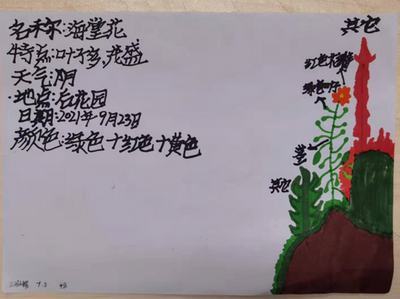 名称:海堂花
特点:叶子多,花盛
天气:阴
地点:后花园
日期:2021年9月23日
颜色:绿色+红色+黄色
其它
红色花
绿色叶
茎
其它